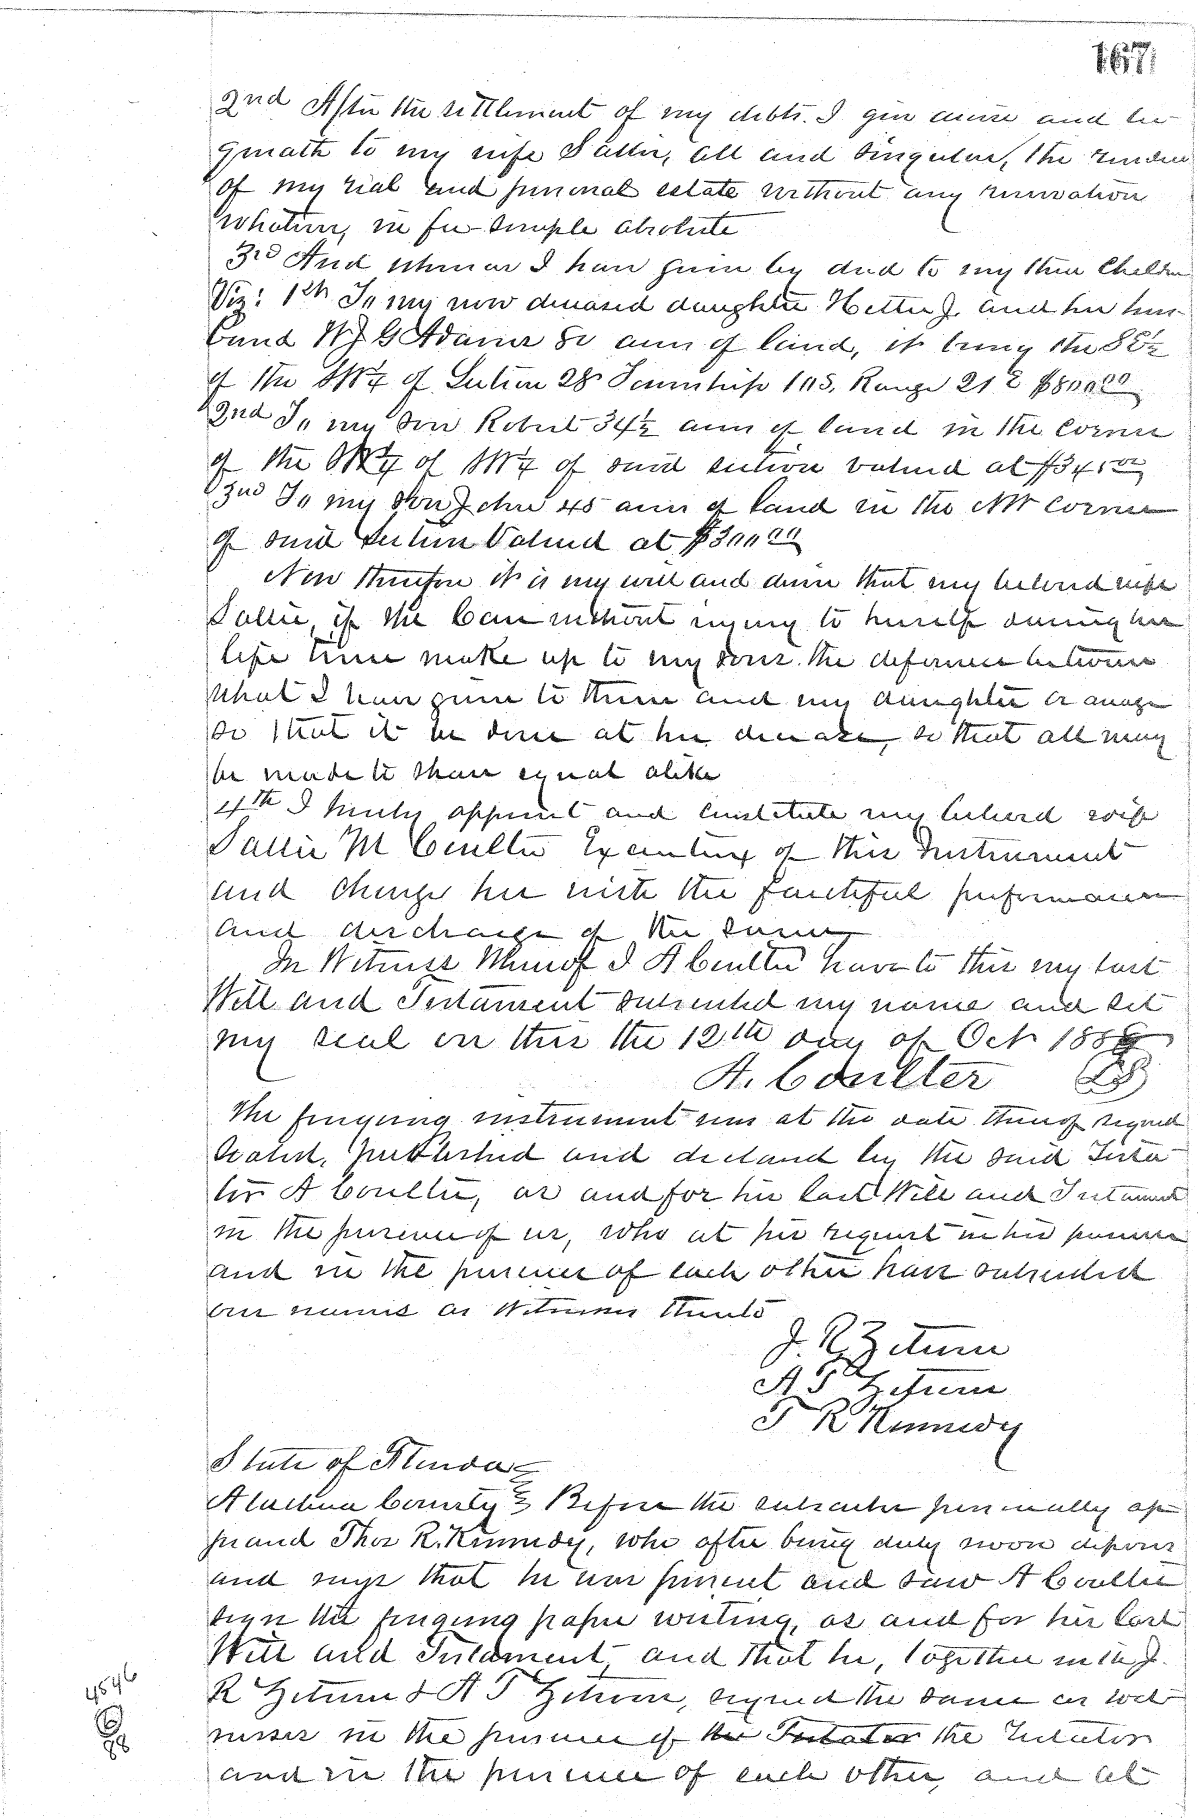 167
2nd After the settlement of my debts. I give devise and be-
queath to my wife Sallie, all and singular, the residue
of my real and personal estate without any reservation
whatever, in fee-simple absolute
3rd And whereas I have given by deed to my three Children
Viz: 1st To my now deceased daughter Hettie J. and her hus-
band W J G Adams 80 acres of land, it being the
of the SW¼ of Section 28 Township 10 S. Range 21 E $800.00
2nd To my son Robert 34½ acres of land in the corner
of the of SW¼ of said section valued at $345.00
3rd To my son John 45 acres of land in the NW corner
of said Section Valued at $300.00
Now therefore it is my will and desire that my beloved wife
Sallie, if she Can without injury to herself during her
life time make up to my sons the deference between
what I have given to them and my daughter or arrange
so that it be done at her decease, so that all may
be made to share equal alike
4th I hereby appoint and constitute my beloved wife
Sallie M Coulter Executrix of this Instrument
and charge her with the faithful performance
and discharge of the same
In Witness Whereof I A Coulter have to this my last
Will and Testament subscribed my name and set
my seal on this the 12th day of Oct 1888
A. Coulter LS
The foregoing instrument was at the date thereof signed
Sealed, published and declared by the said Testa-
tor A Coulter, as and for his last Will and Testament
in the presence of us, who at his request in his presence
and in the presence of each other have subscribed
our names as Witnesses thereto
J. R. Zetrouer
A T Zetrouer
T R Kennedy
State of Florida
Alachua County Before the subscriber personally ap-
peared Thos R. Kennedy, who after being duly sworn deposes
and says that he was present and saw A Coulter
sign the foregoing paper writing, as and for his last
Will and Testament, and that he, together with J.
R Zetrouer & A T Zetrouer, signed the same as wit-
nesses in the presence of the Testator the Testator
and in the presence of each other, and at
4546
88